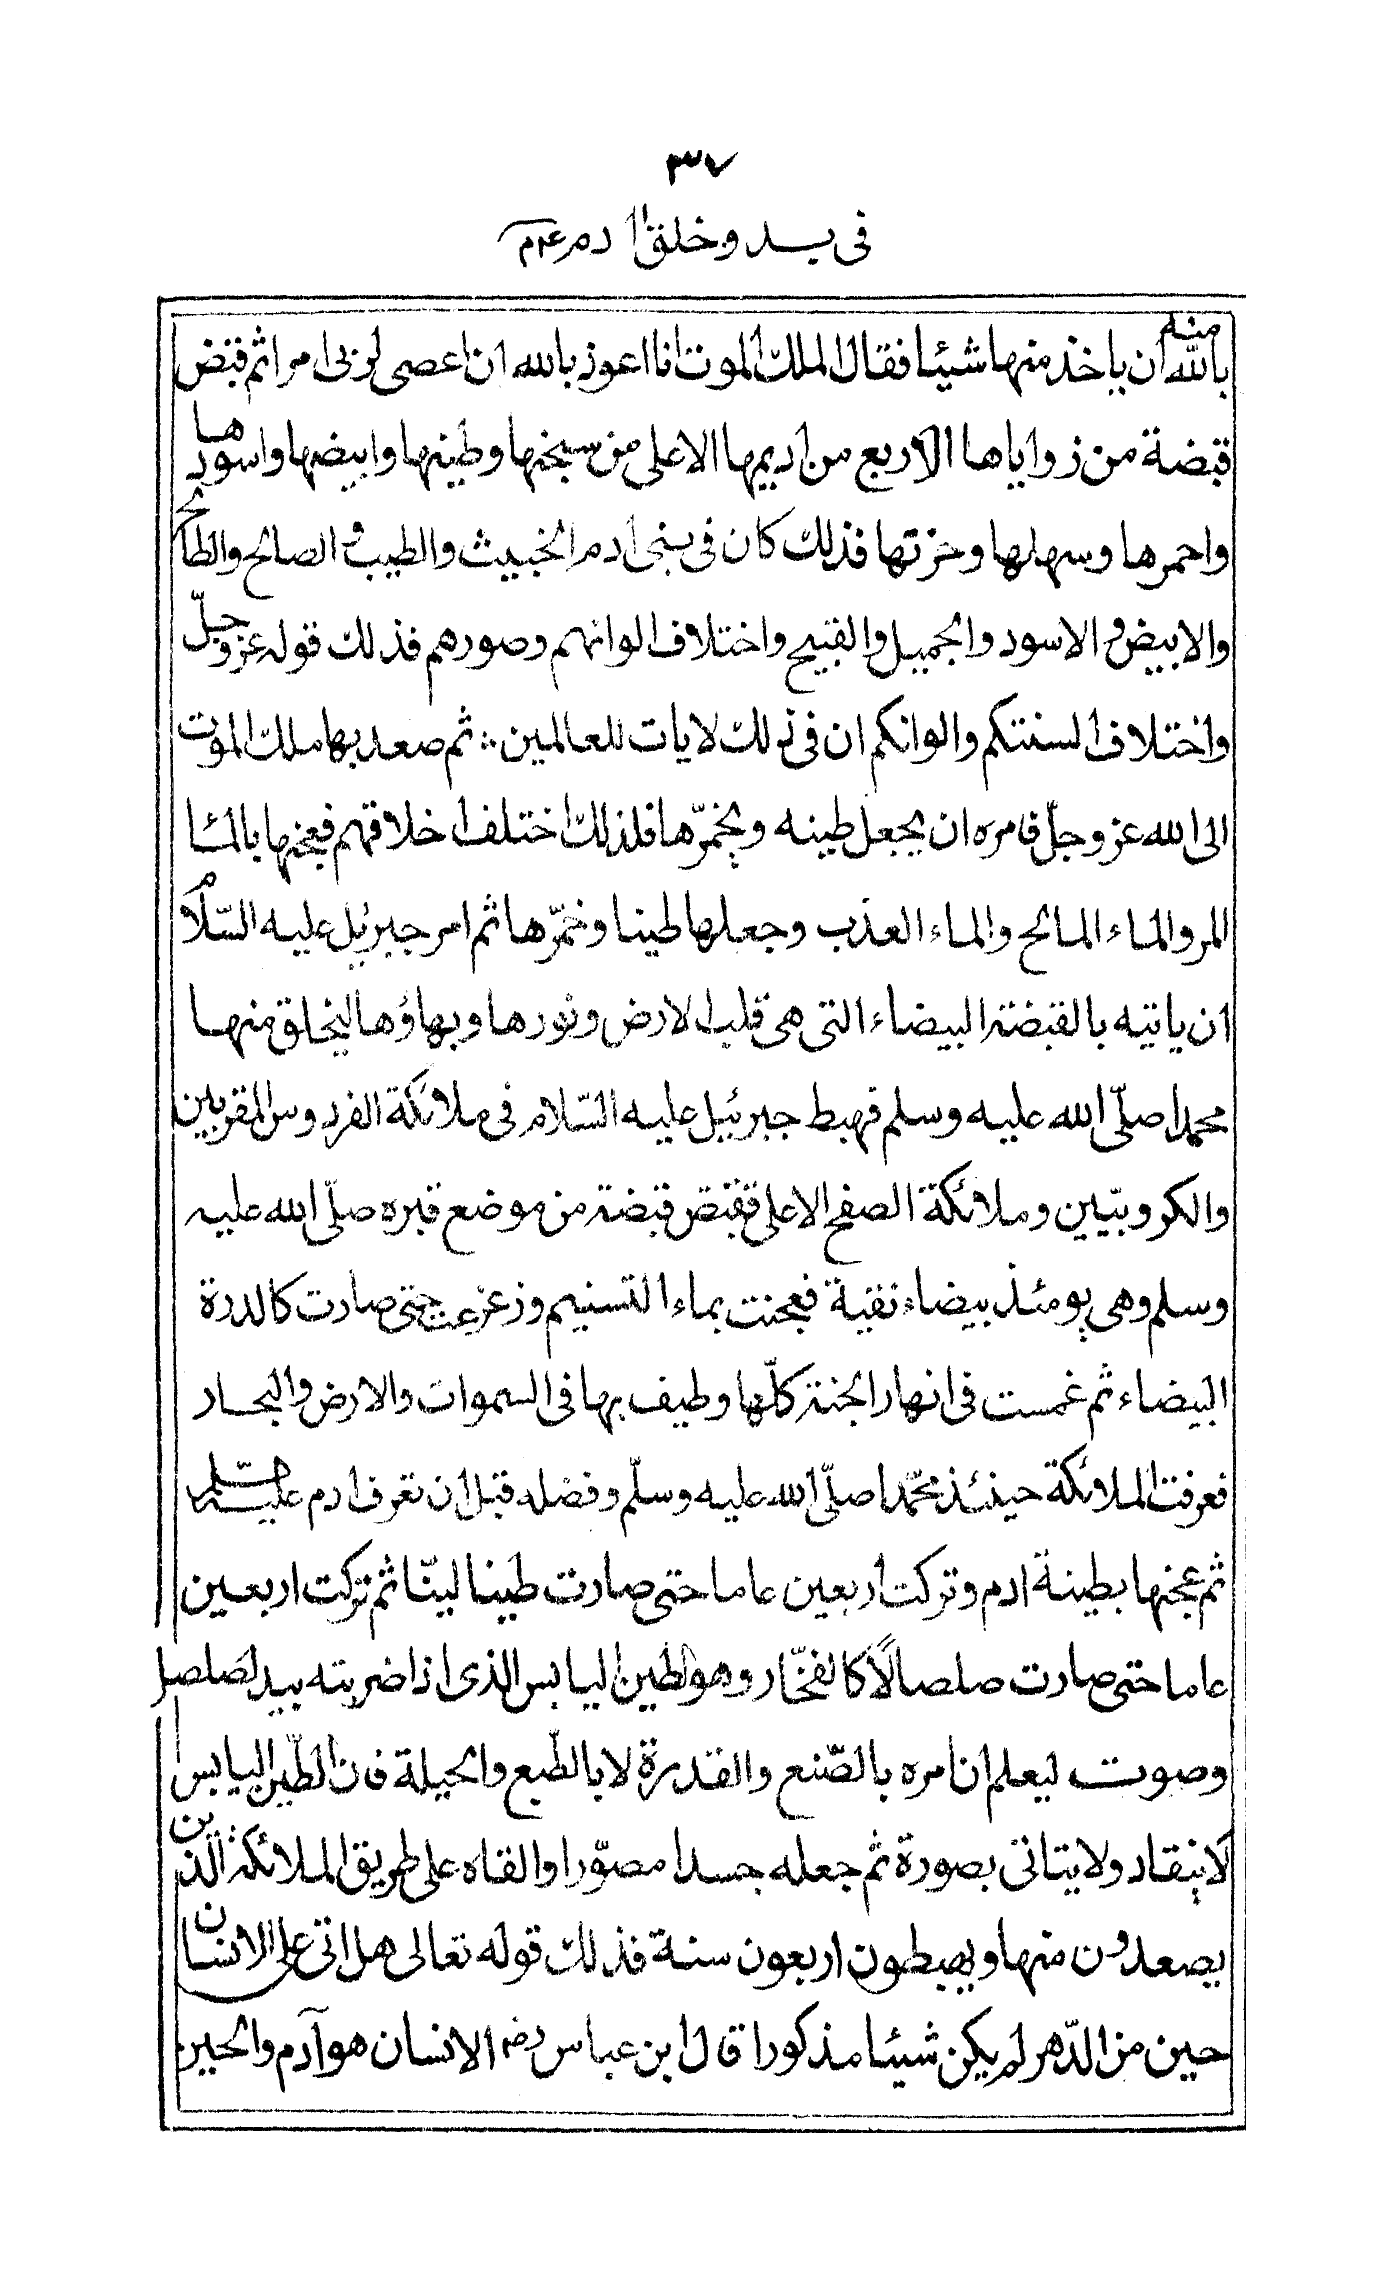 ٣٧
فى بدو خلق ادم ع م
بالله منه ان ياخذ منها شيئا فقال الملك الموت انا اعوذ بالله ان اعصى لربى امرا ثم قبض
قبضة من زواياها الاربع من اديمها الاعلى من سبخها وطينها وابيضها واسودها
واحمرها وسهلها وحزنها فذلك كان فى بنى ادم الخبيث والطيب و الصالح والطالح
والابيض و الاسود والجميل والقبيح واختلاف الوانهم وصورهم فذلك قوله عز وجلّ
واختلاف السنتكم والوانكم ان فى ذلك لايات للعالمين ؞ ثم صعد بها ملك الموت
الى الله عز وجلّ فامره ان يجعل طينه ويخمّرها فلذلك اختلف اخلاقهم فعجنها بالمئا
المر والماء المالح والماء العذب وجعلها طينا وخمّرها ثم امر جبريل عليه السّلام
ان ياتيه بالقبضة البيضاء التى هى قلب الارض ونورها وبهاؤها ليخلق منها
محمدا صلّى الله عليه وسلم فهبط جبرئيل عليه السّلام فى ملائكة الفردوس المقربين
والكروبيّين وملائكة الصفح الاعلى فقبض قبضة من موضع قبره صلّى الله عليه
وسلم وهى يومئذ بيضاء نقية فعجنت بماء التسنيم وزعزعت حتى صارت كالدرة
البيضاء ثم غمست فى انهار الجنة كلّها وطيف بها فى السموات والارض والبحار
فعرفت الملائكة حينئذ محمّدا صلّى الله عليه وسلّم وفضله قبل ان تعرف ادم عليه
ثم عجنها بطينة ادم وتركت اربعين عاما حتى صارت طينا لينّا ثم تركت اربعين
عاما حتى صارت صلصالًا كالفخّار وهو الطين اليابس الذى اذا ضربته بيدك صلصل
وصوت ليعلم ان امره بالصّنع والقدرة لا بالطّبع والحيلة فان الطّين اليابس
لا ينقاد ولا يتاتى بصورة ثم جعله جسدا مصوّرا والقاه على طريق الملائكة الّذين
يصعدون منها ويهبطون اربعون سنة فذلك قوله تعالى هل اتى على الانسان
حين من الدّهر لم يكن شيئا مذكورا قال ابن عباس رضه الانسان هو آدم والحين